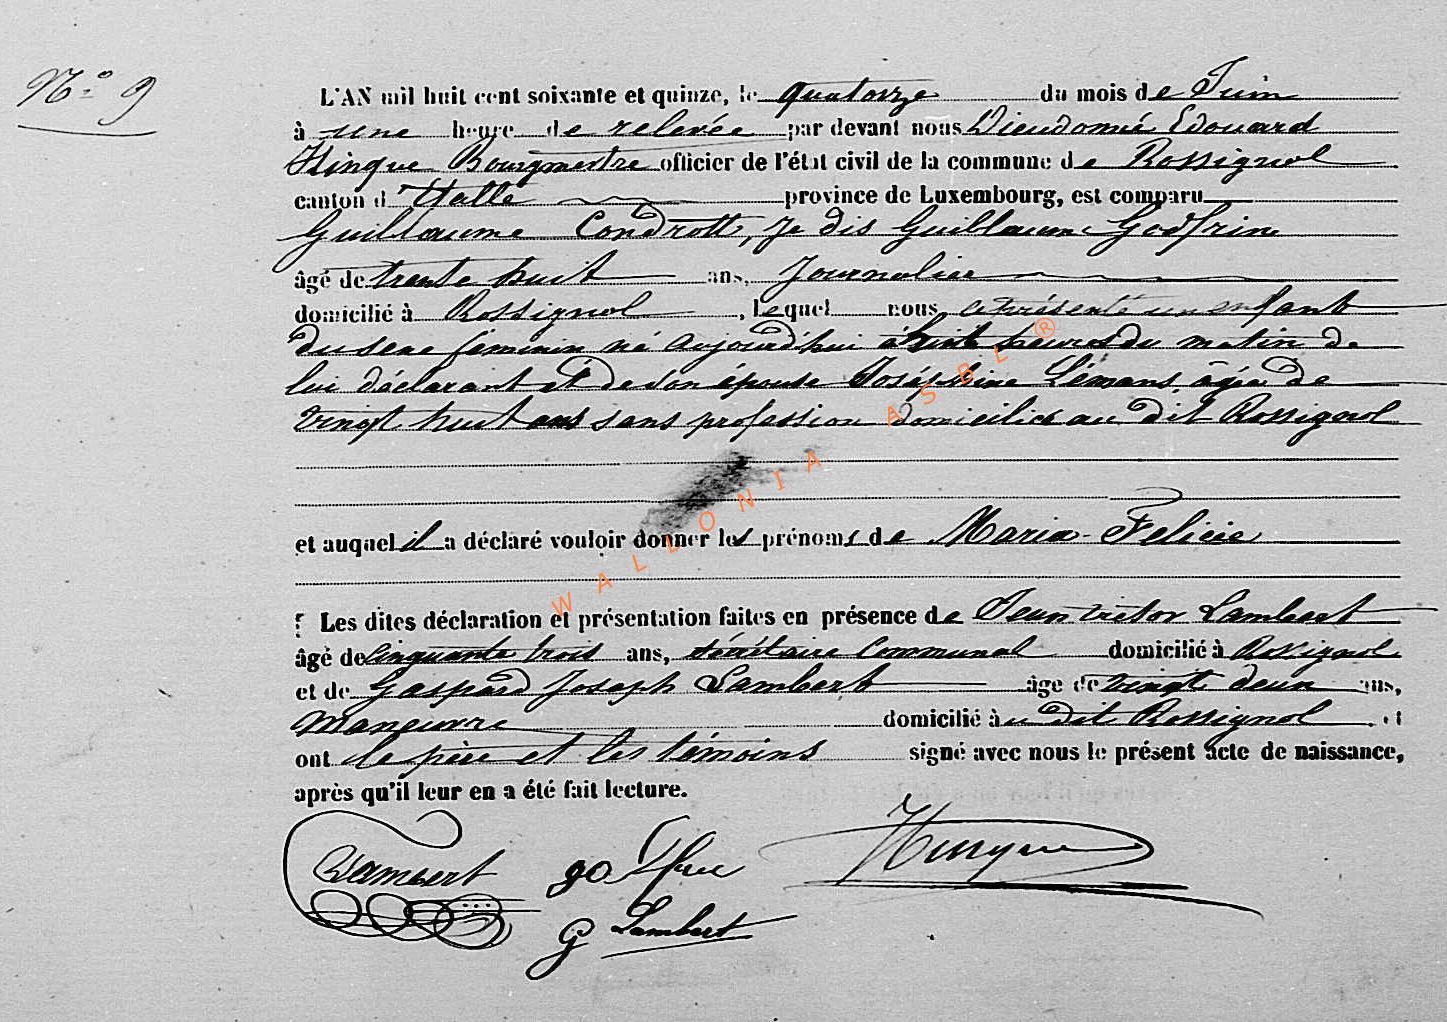 N° 9
L'AN mil huit cent soixante et quinze, le quatorze du mois de Juin
à une heure de relevée par devant nous Dieudonné Edouard
Hinque Bourgmestre officier de l'état civil de la commune de Rossignol
canton d'Etalle province de Luxembourg, est comparu
Guillaume Condrott, je dis Guillaume Godfrin
âgé de trente huit ans, Journalier
domicilié à Rossignol, lequel nous a présenté un enfant
du sexe féminin né aujourd'hui à huit heures du matin de
lui déclarant et de son épouse Joséphine Lémans, âgée de
vingt huit ans sans profession domiciliée au dit Rossignol
et auquel il a déclaré vouloir donner les prénoms de Maria-Felicie
Les dites déclaration et présentation faites en présence de Jean victor Lambert
âgé de cinquante trois ans, sécrétaire Communal domicilié à Rossignol
et de Gaspard Joseph Lambert âge de vingt deux ans,
Manœuvre domicilié à u dit Rossignol et
ont le père et les témoins signé avec nous le présent acte de naissance,
après qu'il leur en a été fait lecture.
Lambert Hinque
G Lambert
WALLONIA ASBL ®